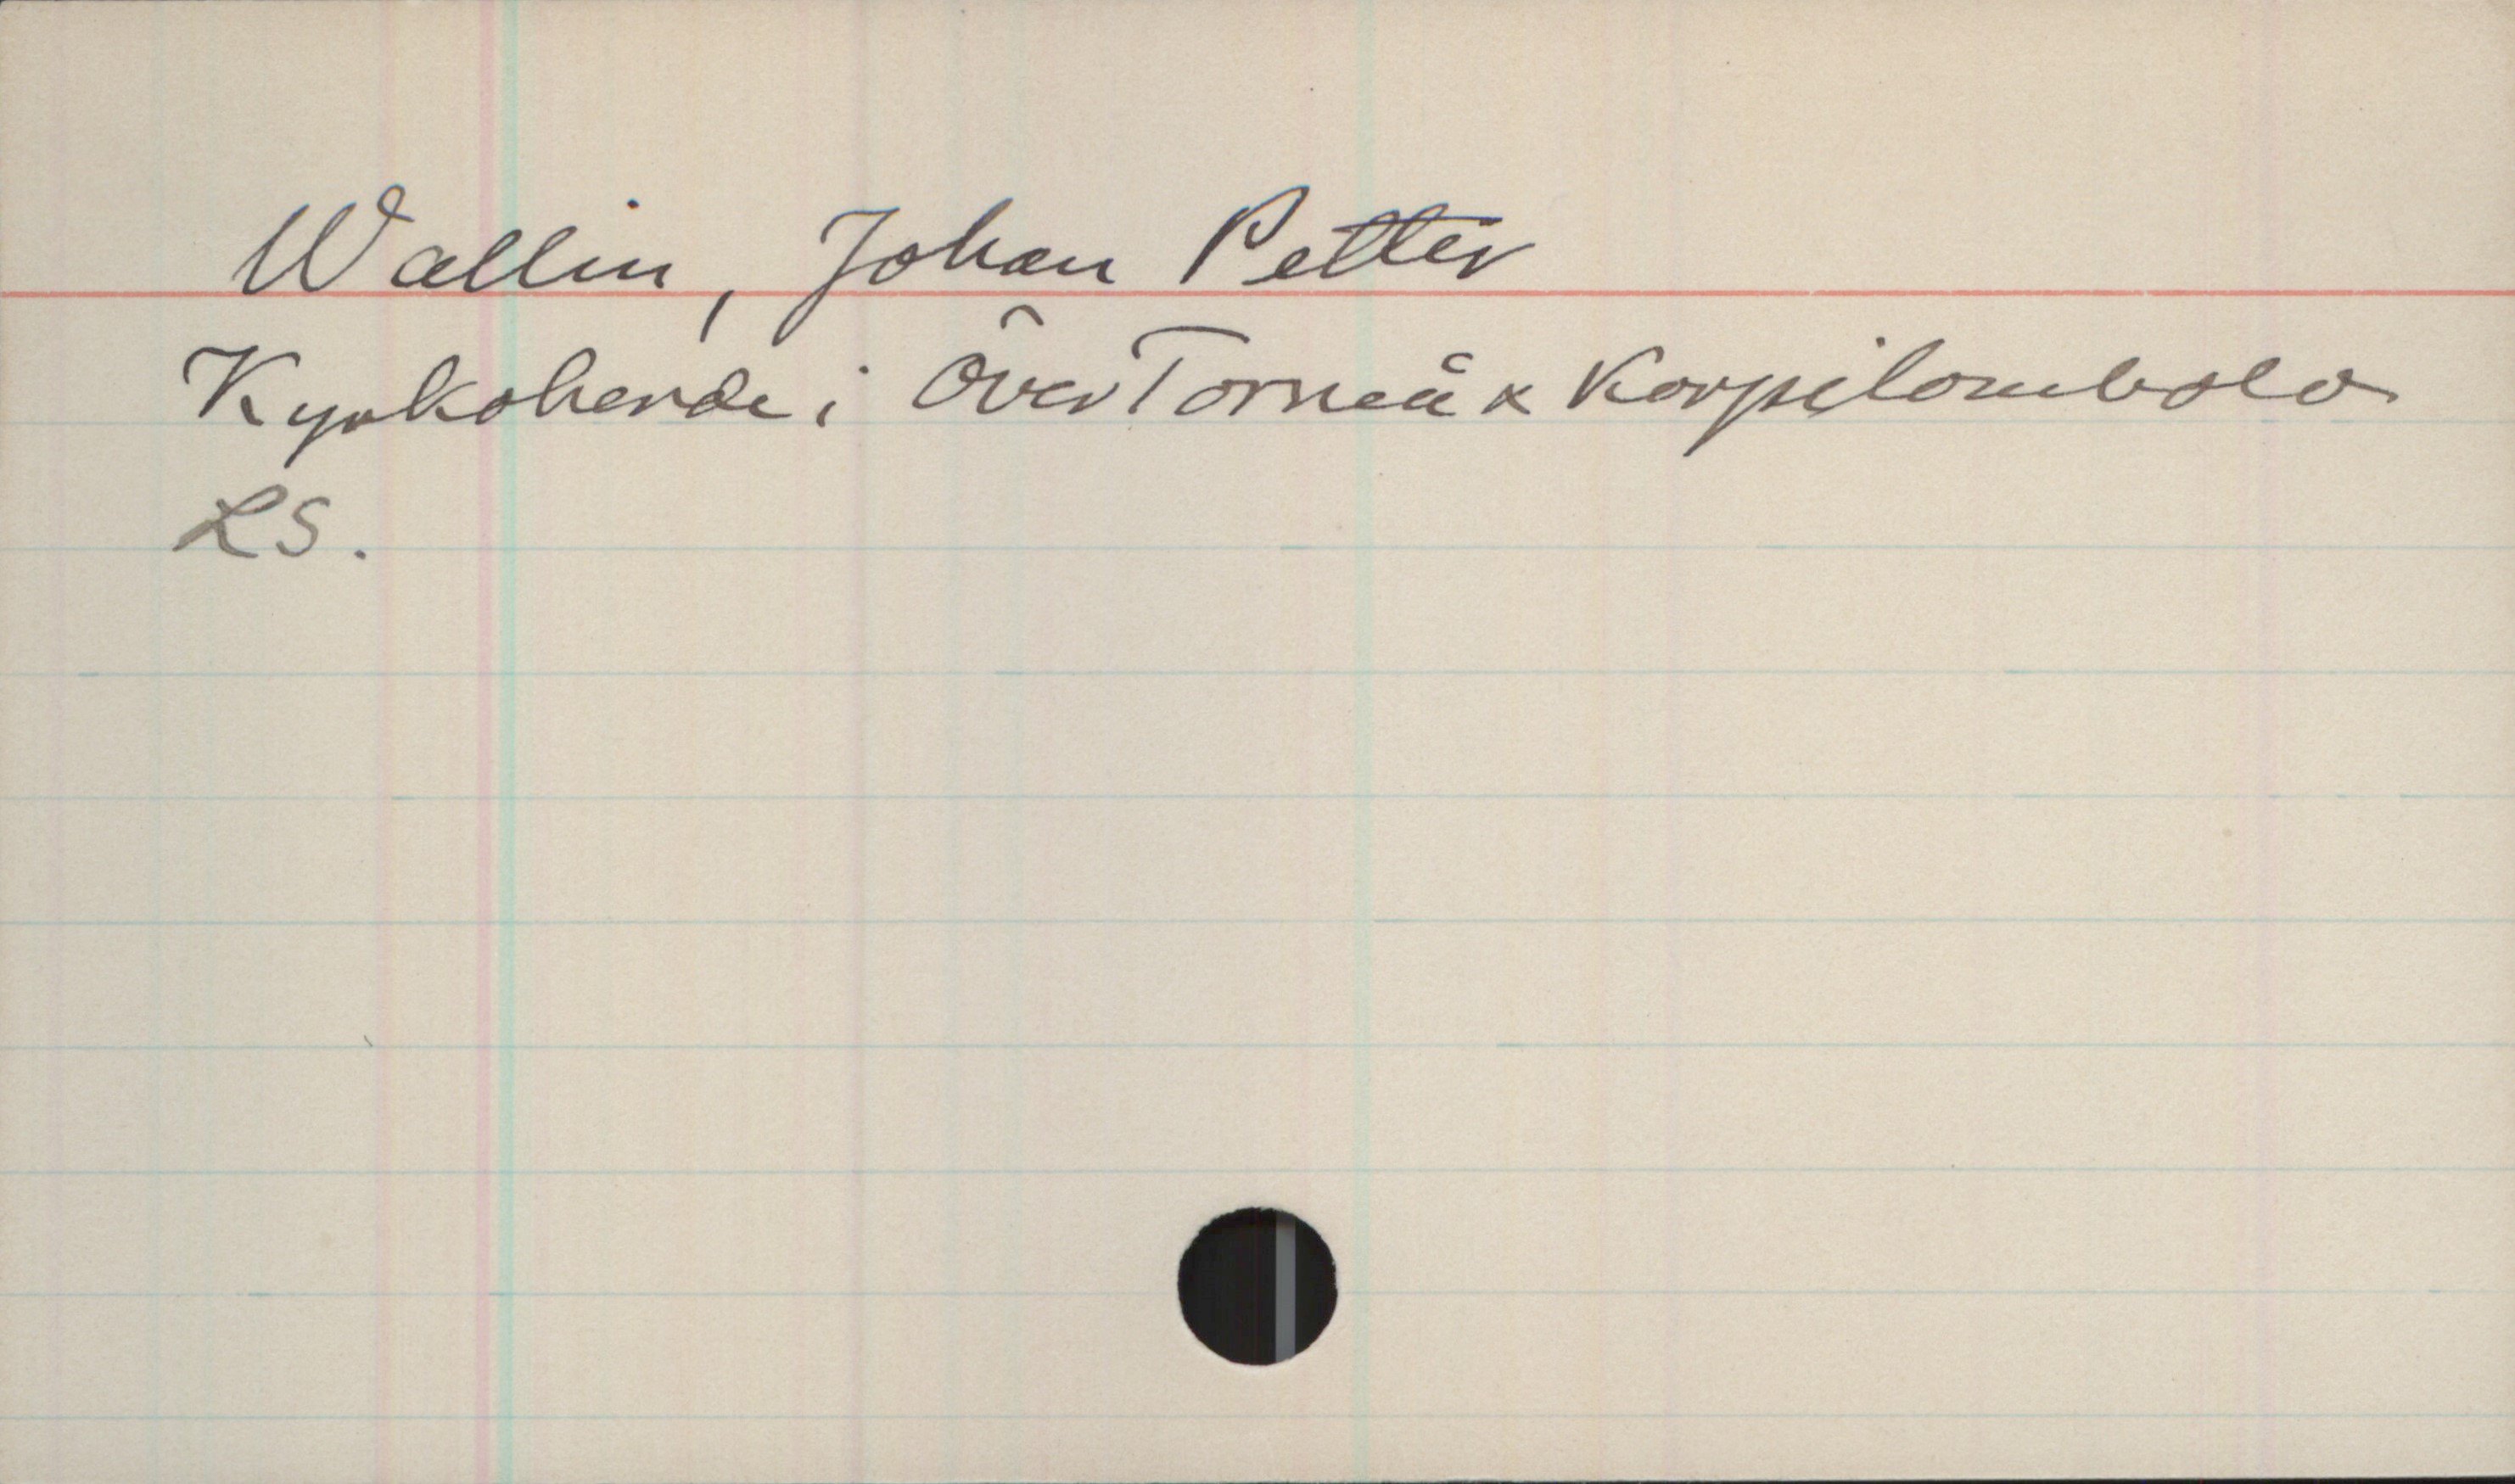 Wallin, Johan Petter
Kyrkoherde i Över Torneå & Korpilombolo
LS.